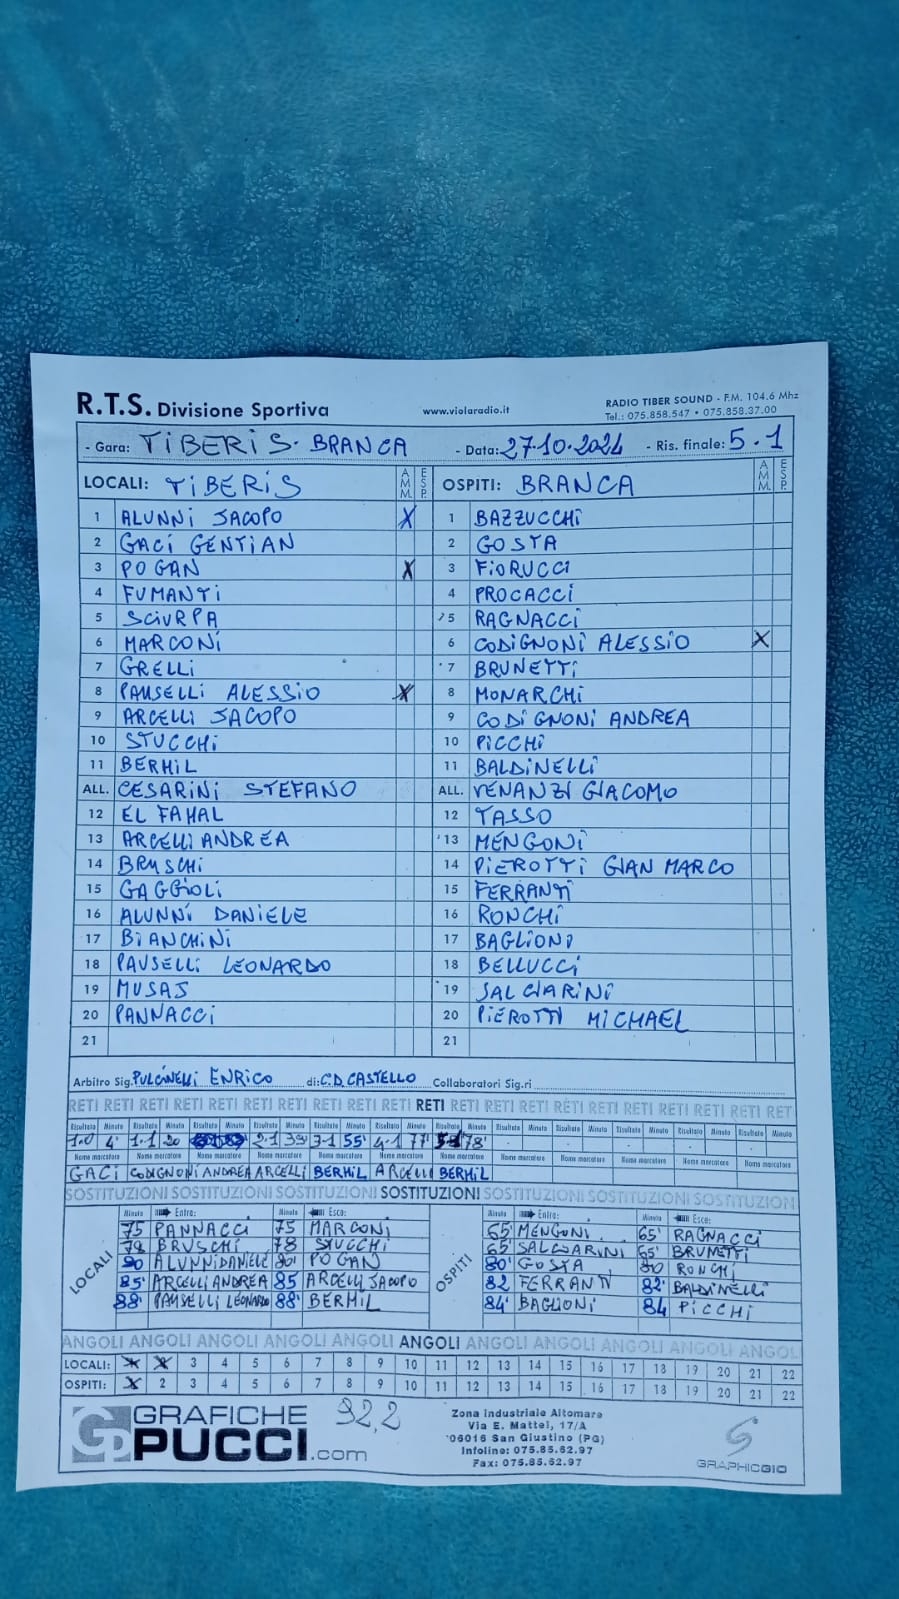 R.T.S. Divisione Sportiva www.violaradio.it RADIO TIBER SOUND - F.M. 104.6 Mhz
Tel.: 075.858.547 • 075.858.37.00
- Gara: TIBERIS - BRANCA - Data: 27-10-2024 - Ris. finale: 5-1
LOCALI: TIBERIS AMM. ESP. OSPITI: BRANCA AMM. ESP.
1 ALUNNI JACOPO X 1 BAZZUCCHI
2 GACI GENTIAN 2 GOSTA
3 POGAN X 3 FIORUCCI
4 FUMANTI 4 PROCACCI
5 SCIURPA 5 RAGNACCI
6 MARCONI 6 CODIGNONI ALESSIO X
7 GRELLI 7 BRUNETTI
8 PAUSELLI ALESSIO X 8 MONARCHI
9 ARCELLI JACOPO 9 CODIGNONI ANDREA
10 STUCCHI 10 PICCHI
11 BERHIL 11 BALDINELLI
ALL. CESARINI STEFANO ALL. VENANZI GIACOMO
12 EL FAHAL 12 TASSO
13 ARCELLI ANDREA 13 MENGONI
14 BRUSCHI 14 PIEROTTI GIAN MARCO
15 GAGGIOLI 15 FERRANTI
16 ALUNNI DANIELE 16 RONCHI
17 BIANCHINI 17 BAGLIONI
18 PAUSELLI LEONARDO 18 BELLUCCI
19 MUSAJ 19 SALCIARINI
20 PANNACCI 20 PIEROTTI MICHAEL
21 21
Arbitro Sig. PULCINELLI ENRICO di: C.D. CASTELLO Collaboratori Sig.ri
RETI RETI RETI RETI RETI RETI RETI RETI RETI RETI RETI RETI RETI RETI RETI RETI RETI RETI RETI RETI RET
Risultato Minuto Risultato Minuto Risultato Minuto Risultato Minuto Risultato Minuto Risultato Minuto Risultato Minuto Risultato Minuto Risultato Minuto Risultato Minuto Risultato Minuto Risultato Minuto
1-0 4' 1-1 20 2-1 39' 3-1 55' 4-1 77' 5-1 78'
Nome marcatore Nome marcatore Nome marcatore Nome marcatore Nome marcatore Nome marcatore Nome marcatore Nome marcatore Nome marcatore Nome marcatore Nome marcatore Nome marcatore
GACI CODIGNONI ANDREA ARCELLI BERHIL ARCELLI BERHIL
SOSTITUZIONI SOSTITUZIONI SOSTITUZIONI SOSTITUZIONI SOSTITUZIONI SOSTITUZIONI SOSTITUZIONI
LOCALI Minuto Entra: Minuto Esce: OSPITI Minuto Entra: Minuto Esce:
75 PANNACCI 75 MARCONI 65' MENGONI 65' RAGNACCI
78 BRUSCHI 78 STUCCHI 65' SALCIARINI 65' BRUNETTI
80 ALUNNI DANIELE 80' POGAN 80' GOSTA 80 RONCHI
85' ARCELLI ANDREA 85 ARCELLI JACOPO 82 FERRANTI 82' BALDINELLI
88' PAUSELLI LEONARDO 88' BERHIL 84' BAGLIONI 84 PICCHI
ANGOLI ANGOLI ANGOLI ANGOLI ANGOLI ANGOLI ANGOLI ANGOLI ANGOLI ANGOLI ANGOLI
LOCALI: X X 3 4 5 6 7 8 9 10 11 12 13 14 15 16 17 18 19 20 21 22
OSPITI: X 2 3 4 5 6 7 8 9 10 11 12 13 14 15 16 17 18 19 20 21 22
GRAFICHE
PUCCI.com
92,2
Zona Industriale Altomare
Via E. Mattei, 17/A
06016 San Giustino (PG)
Infoline: 075.85.62.97
Fax: 075.85.62.97
GRAPHICGIO